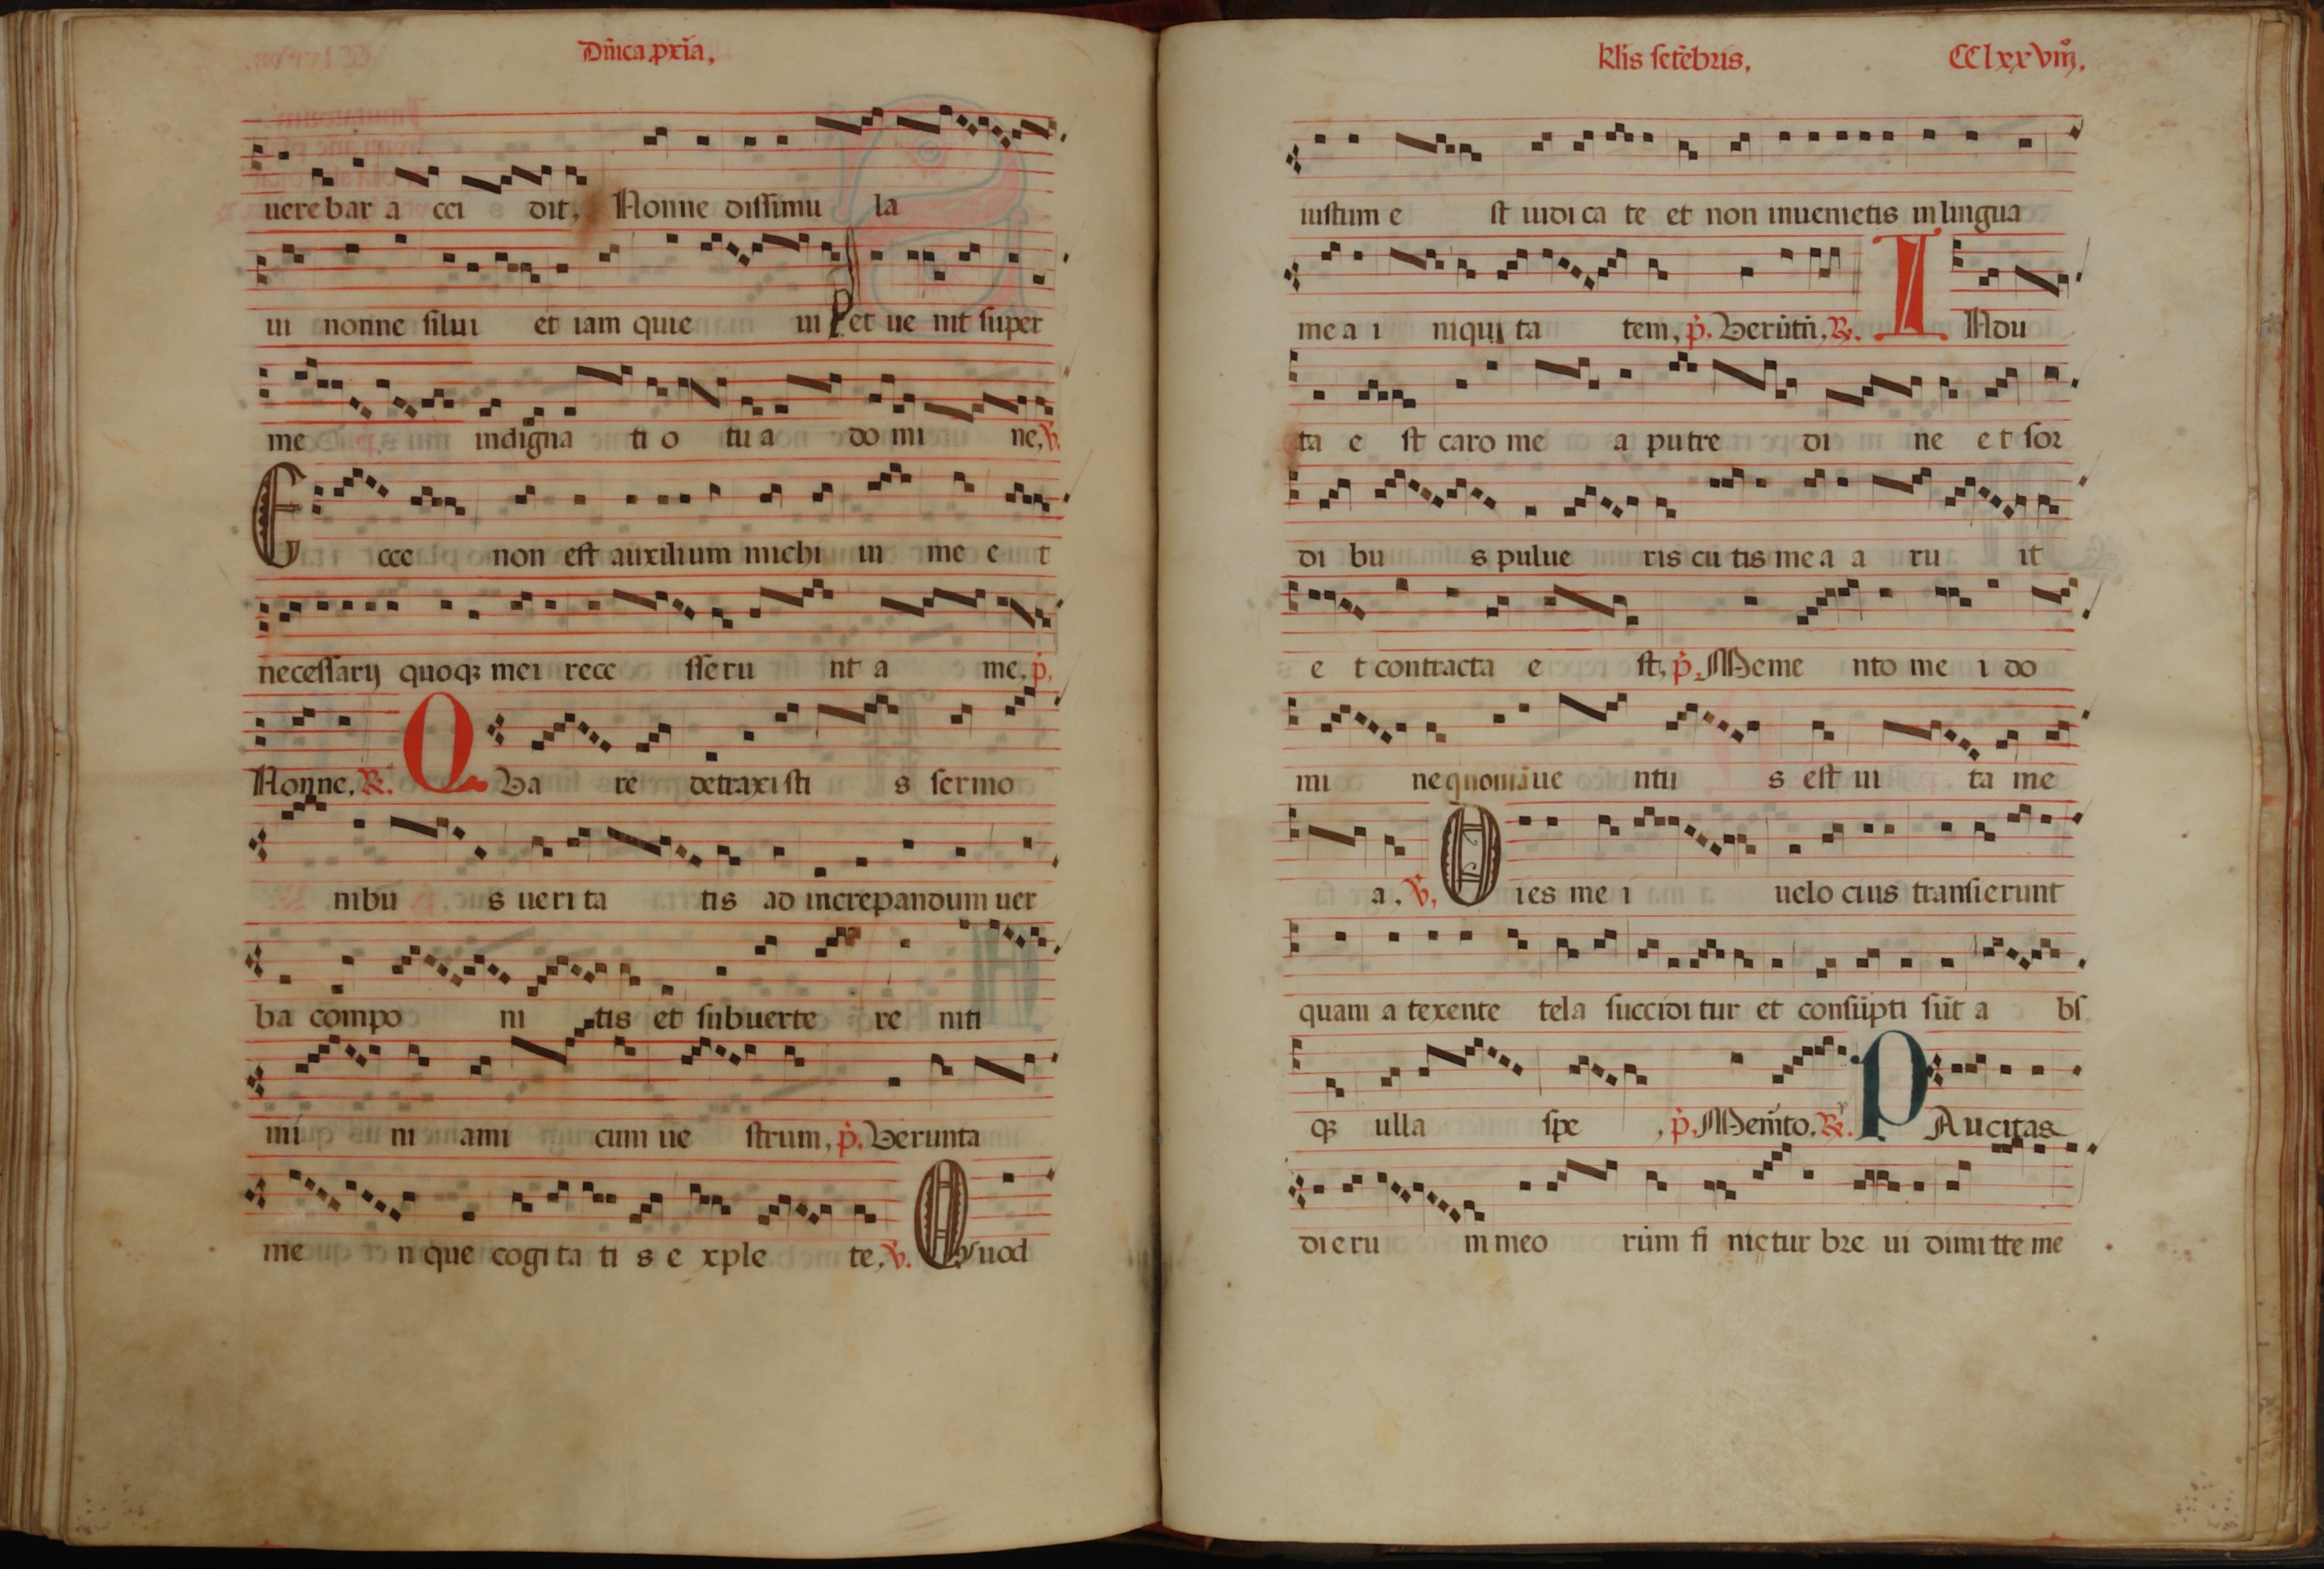 Dñica pxıa,
uerebar a cci dit, Nonne dissimu la
ui nonne silui et iam quie ui et ue nit super
me indigna ti o tu a do mi ne, v.
Ecce non est auxilium michi in me e t
necessarij quoqꝫ mei rece sseru nt a me, p̃.
Nonne. R. Qua re detraxi sti s sermo
nibu s ueri ta tis ad increpandum uer
ba compo ni tis et subuerte re niti
mi ni ami cum ue strum, p̃. Verunta
me n que cogi ta ti s e xple te, v. Quod
klis setẽbris, CClxxviij,
iustum e st iudi ca te et non inuenietis in lingua
me a i niqui ta tem, p̃. Verũtñ, R. Indu
ta e st caro me a putre di ne e t sor
di bu s pulue ris cu tis me a a ru it
e t contracta e st, p̃. Meme nto me i do
mi ne quoniã ue ntu s est ui ta me
a, v, Dies me i uelo cius transierunt
quam a texente tela succidi tur et consũpti sũt a bs
qꝫ ulla spe , p̃. Memẽto. R. Paucitas
dieru m meo rum fi nietur bre ui dimitte me